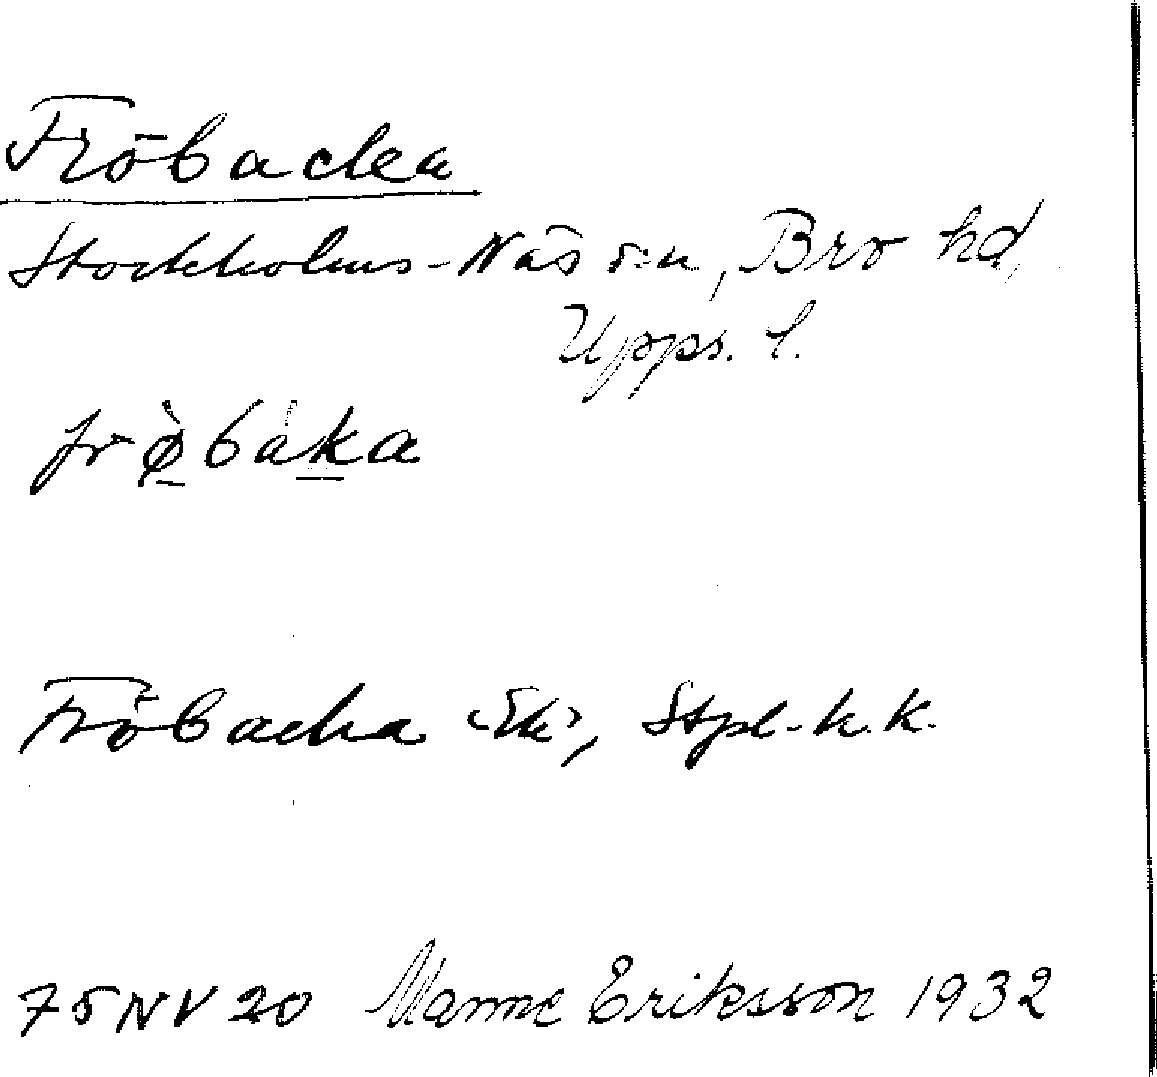 Fröbacka
Stockholms-Näs sn, Bro hd,
Upps. l.
frø̀bàka
Fröbacka Ek, Stpl-k.k.
75NV20 Manne Eriksson 1932